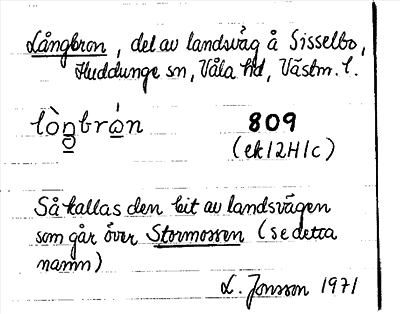 Långbron, del av landsväg å Sisselbo,
Huddunge sn, Våla hd, Västm. l.
lòn̥brán 809
(ek 12H1c)
Så kallas den bit av landsvägen
som går över Stormossen (se detta
namn)
L. Jonsson 1971